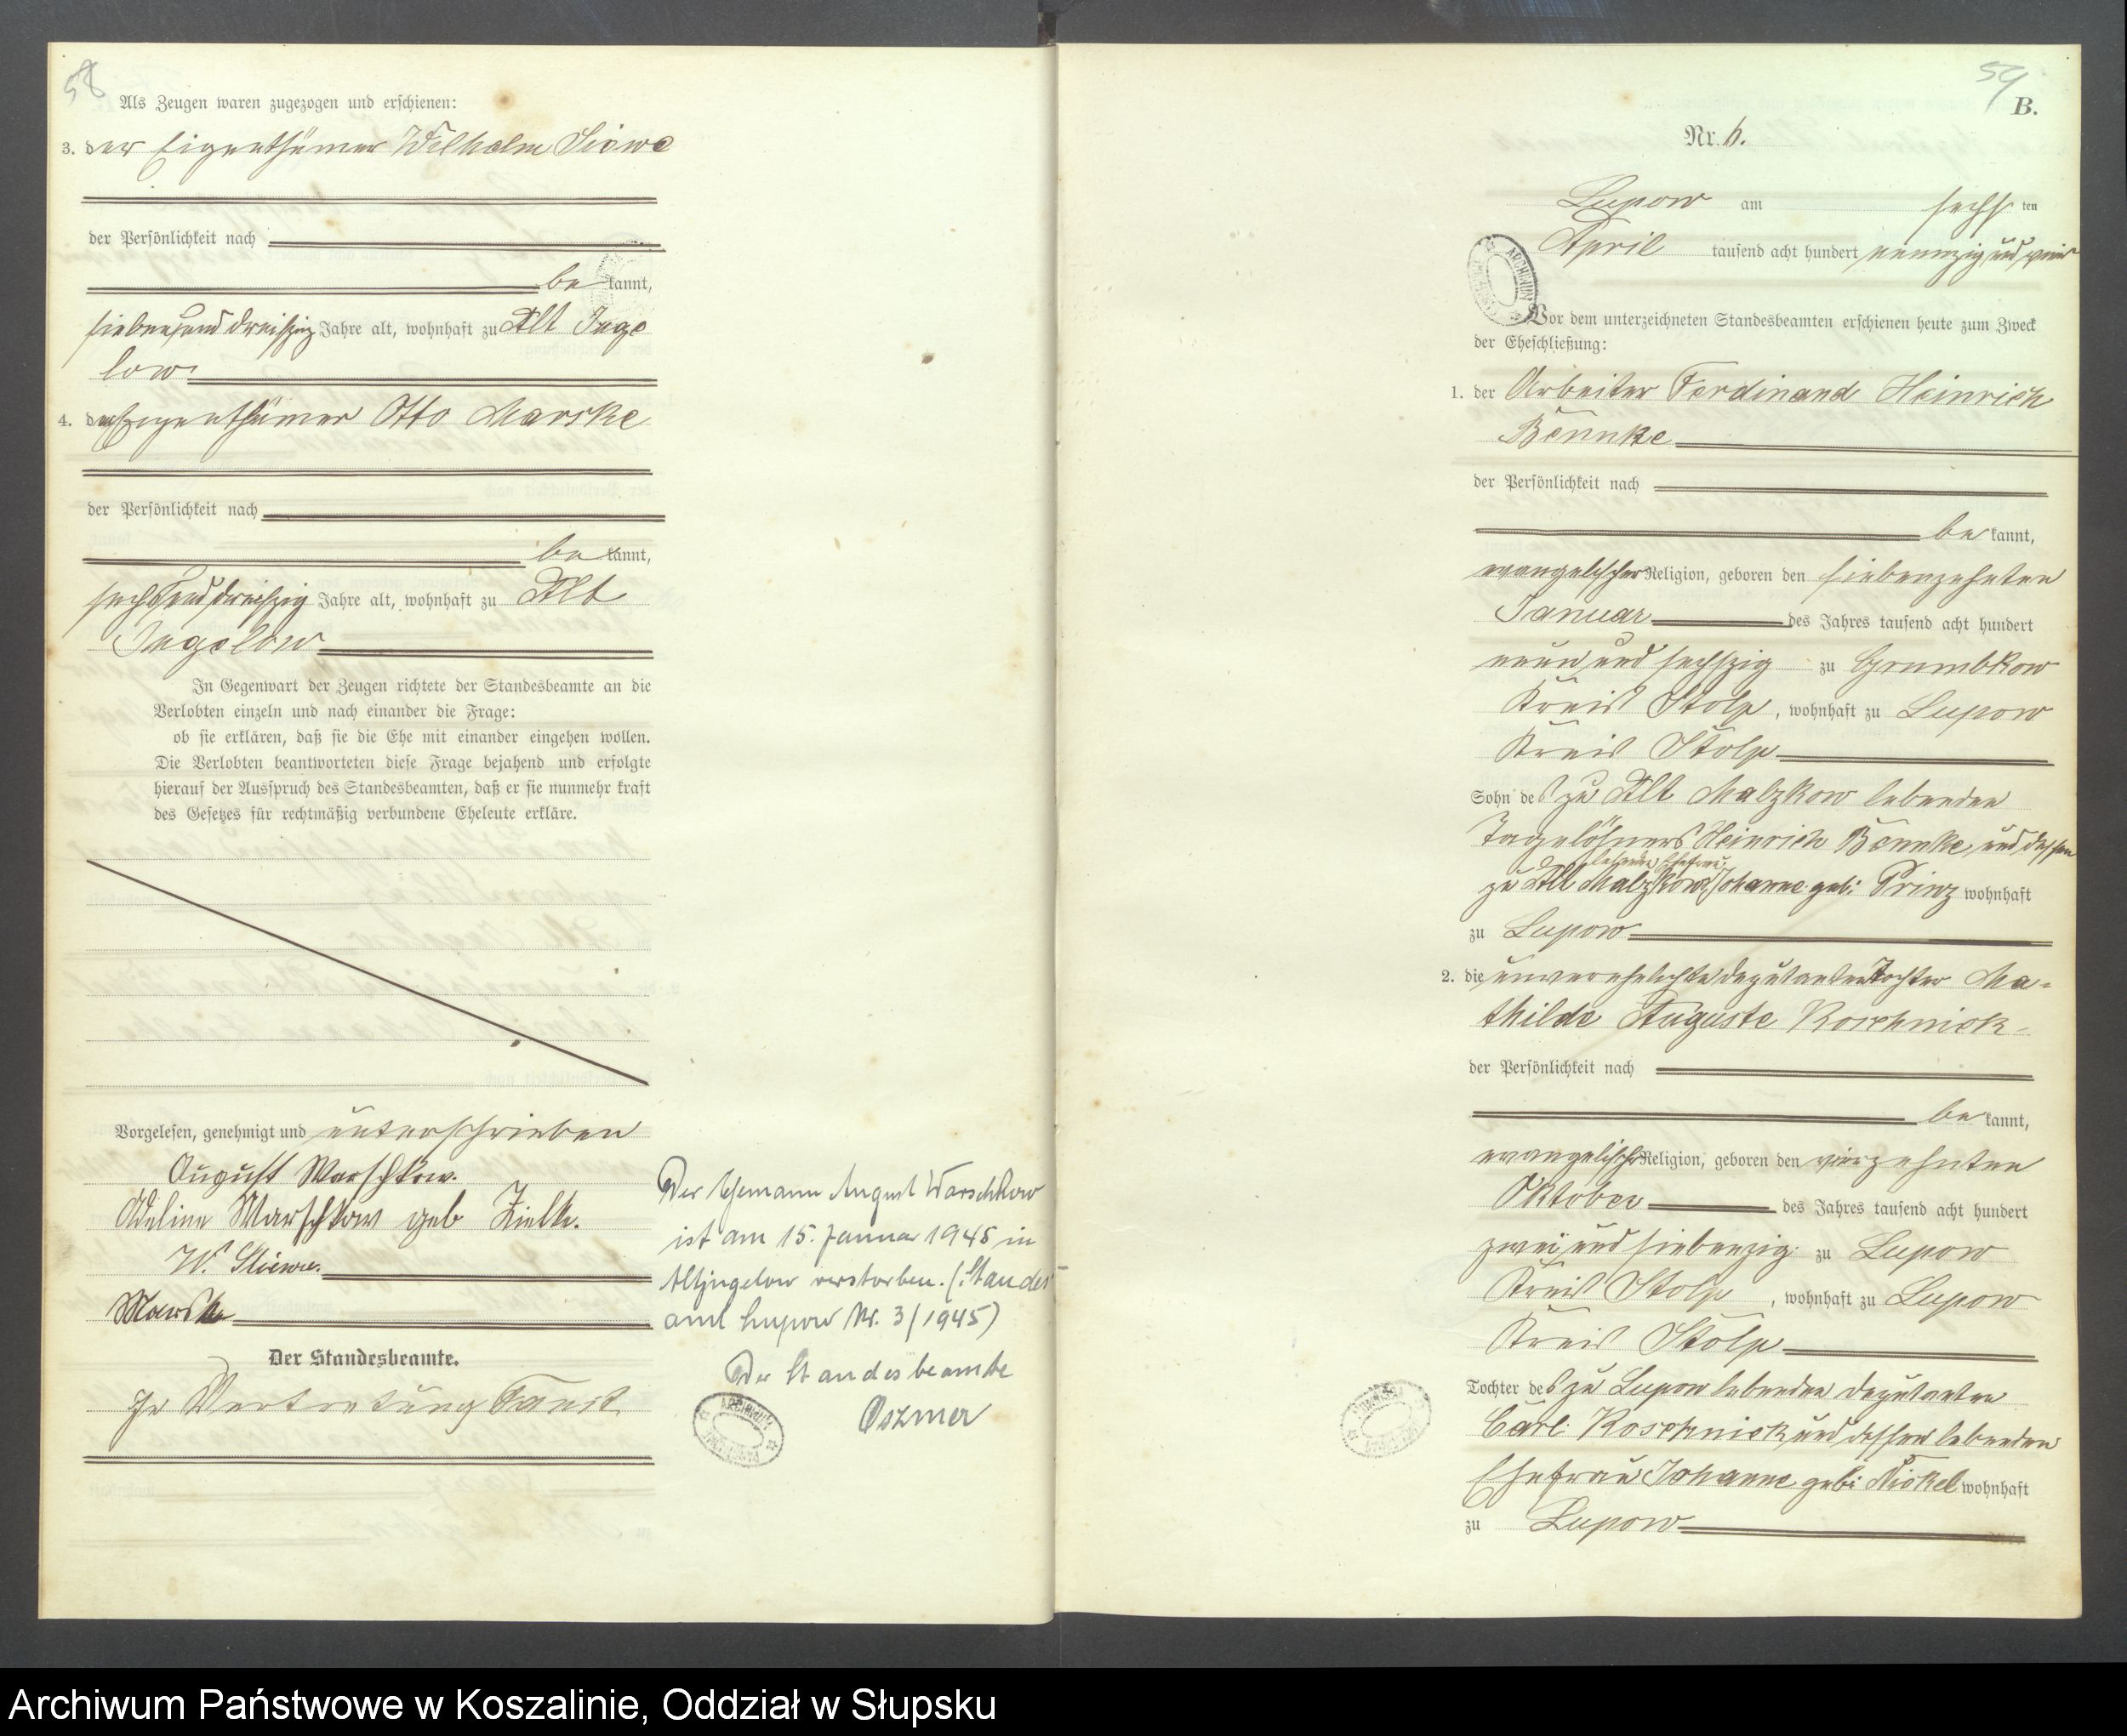 58
Als Zeugen waren zugezogen und erschienen:
3. der Eigenthümer Wilhelm Siewe
der Persönlichkeit nach
bekannt,
siebenunddreißig Jahre alt, wohnhaft zu Alt Juge
low
4. der Eigenthümer Otto Marske
der Persönlichkeit nach
bekannt,
sechsunddreißig Jahre alt, wohnhaft zu Alt
Jugelow
In Gegenwart der Zeugen richtete der Standesbeamte an die
Verlobten einzeln und nach einander die Frage:
ob sie erklären, daß sie die Ehe mit einander eingehen wollen.
Die Verlobten beantworteten diese Frage bejahend und erfolgte
hierauf der Ausspruch des Standesbeamten, daß er sie nunmehr kraft
des Gesetzes für rechtmäßig verbundene Eheleute erkläre.
Vorgelesen, genehmigt und unterschrieben
August Warschkow.
Adeline Warschkow geb Zielke.
W.
Marske
Der Standesbeamte.
In Vertretung
Der Ehemann August Warschkow
ist am 15. Januar 1945 in
Altjugelow verstorben. (Standes-
amt Lupow Nr. 3/1945)
Der Standesbeamte
Oszmer
59
B.
Nr. 6.
Lupow am sechsten
April tausend acht hundert neunzig und vier
Vor dem unterzeichneten Standesbeamten erschienen heute zum Zweck
der Eheschließung:
1. der Arbeiter Ferdinand Heinrich
Bennke
der Persönlichkeit nach
bekannt,
evangelischer Religion, geboren den siebenzehnten
Januar des Jahres tausend acht hundert
neun und sechszig zu Grumbkow
Kreis Stolp, wohnhaft zu Lupow
Kreis Stolp
Sohn des zu Alt Malzkow lebenden
Tagelöhners Heinrich Bennke und dessen
lebende Ehefrau
zu Alt Malzkow Johanne geb: Prinz wohnhaft
zu Lupow
2. die unverehelichte Deputantentochter Ma-
thilde Auguste Koschnick
der Persönlichkeit nach
bekannt,
evangelischer Religion, geboren den vierzehnten
Oktober des Jahres tausend acht hundert
zwei und siebenzig zu Lupow
Kreis Stolp, wohnhaft zu Lupow
Kreis Stolp
Tochter des zu Lupow lebenden Deputanten
Carl Koschnick und dessen lebenden
Ehefrau Johanne geb: Nickel wohnhaft
zu Lupow
Archiwum Państwowe w Koszalinie, Oddział w Słupsku